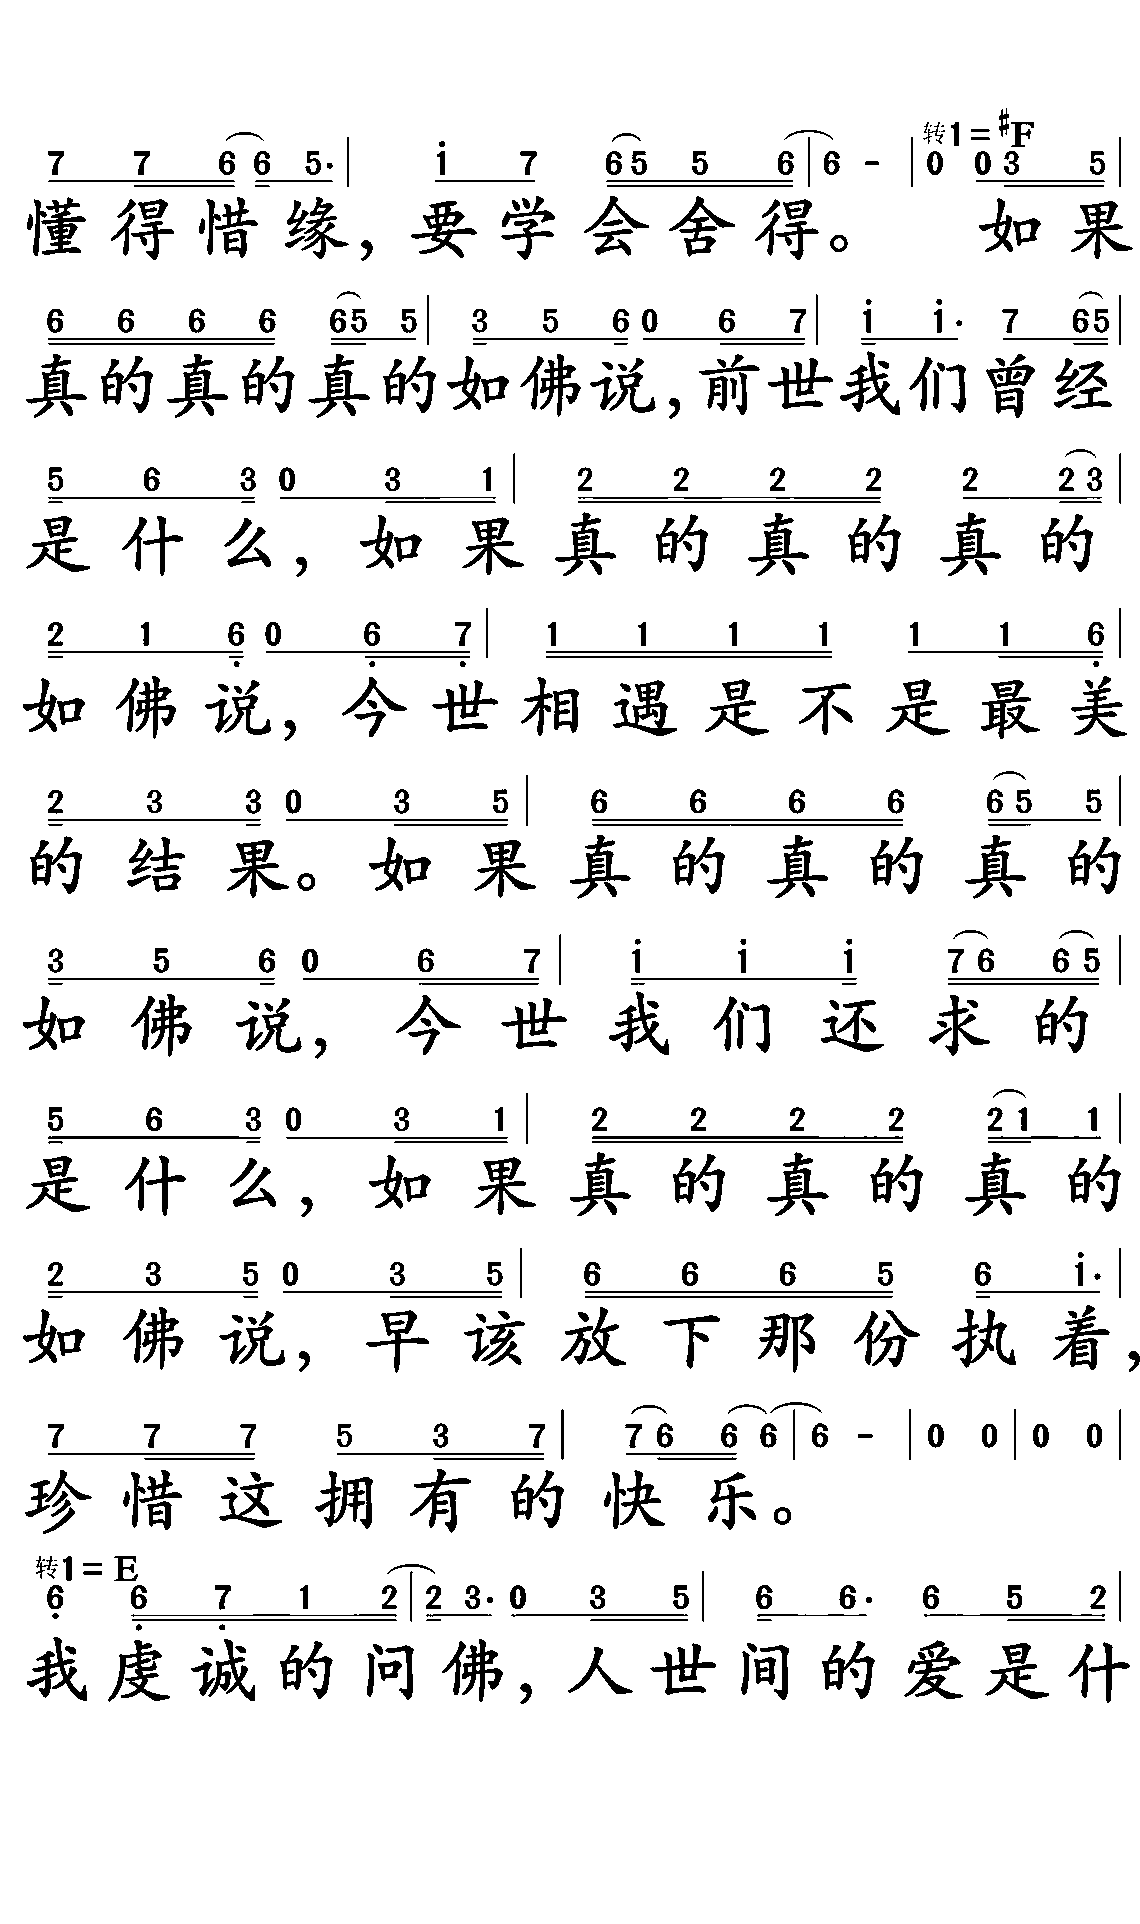 转1=#F
7 7 6 6 5. | i 7 65 5 6 | 6 - | 0 0 3 5 |
懂得惜缘，要学会舍得。 如果
6 6 6 6 65 5 | 3 5 6 0 6 7 | i i. 7 65 |
真的真的真的如佛说，前世我们曾经
5 6 3 0 3 1 | 2 2 2 2 2 2 3 |
是什么，如果真的真的真的
2 1 6 0 6 7 | 1 1 1 1 1 1 6 |
如佛说，今世相遇是不是最美
2 3 3 0 3 5 | 6 6 6 6 6 5 5 |
的结果。如果真的真的真的
3 5 6 0 6 7 | i i i 7 6 6 5 |
如佛说，今世我们还求的
5 6 3 0 3 1 | 2 2 2 2 2 1 1 |
是什么，如果真的真的真的
2 3 5 0 3 5 | 6 6 6 5 6 i. |
如佛说，早该放下那份执着，
7 7 7 5 3 7 | 7 6 6 6 | 6 - | 0 0 | 0 0 |
珍惜这拥有的快乐。
转1=E
6 6 7 1 2 | 2 3. 0 3 5 | 6 6. 6 5 2 |
我虔诚的问佛，人世间的爱是什